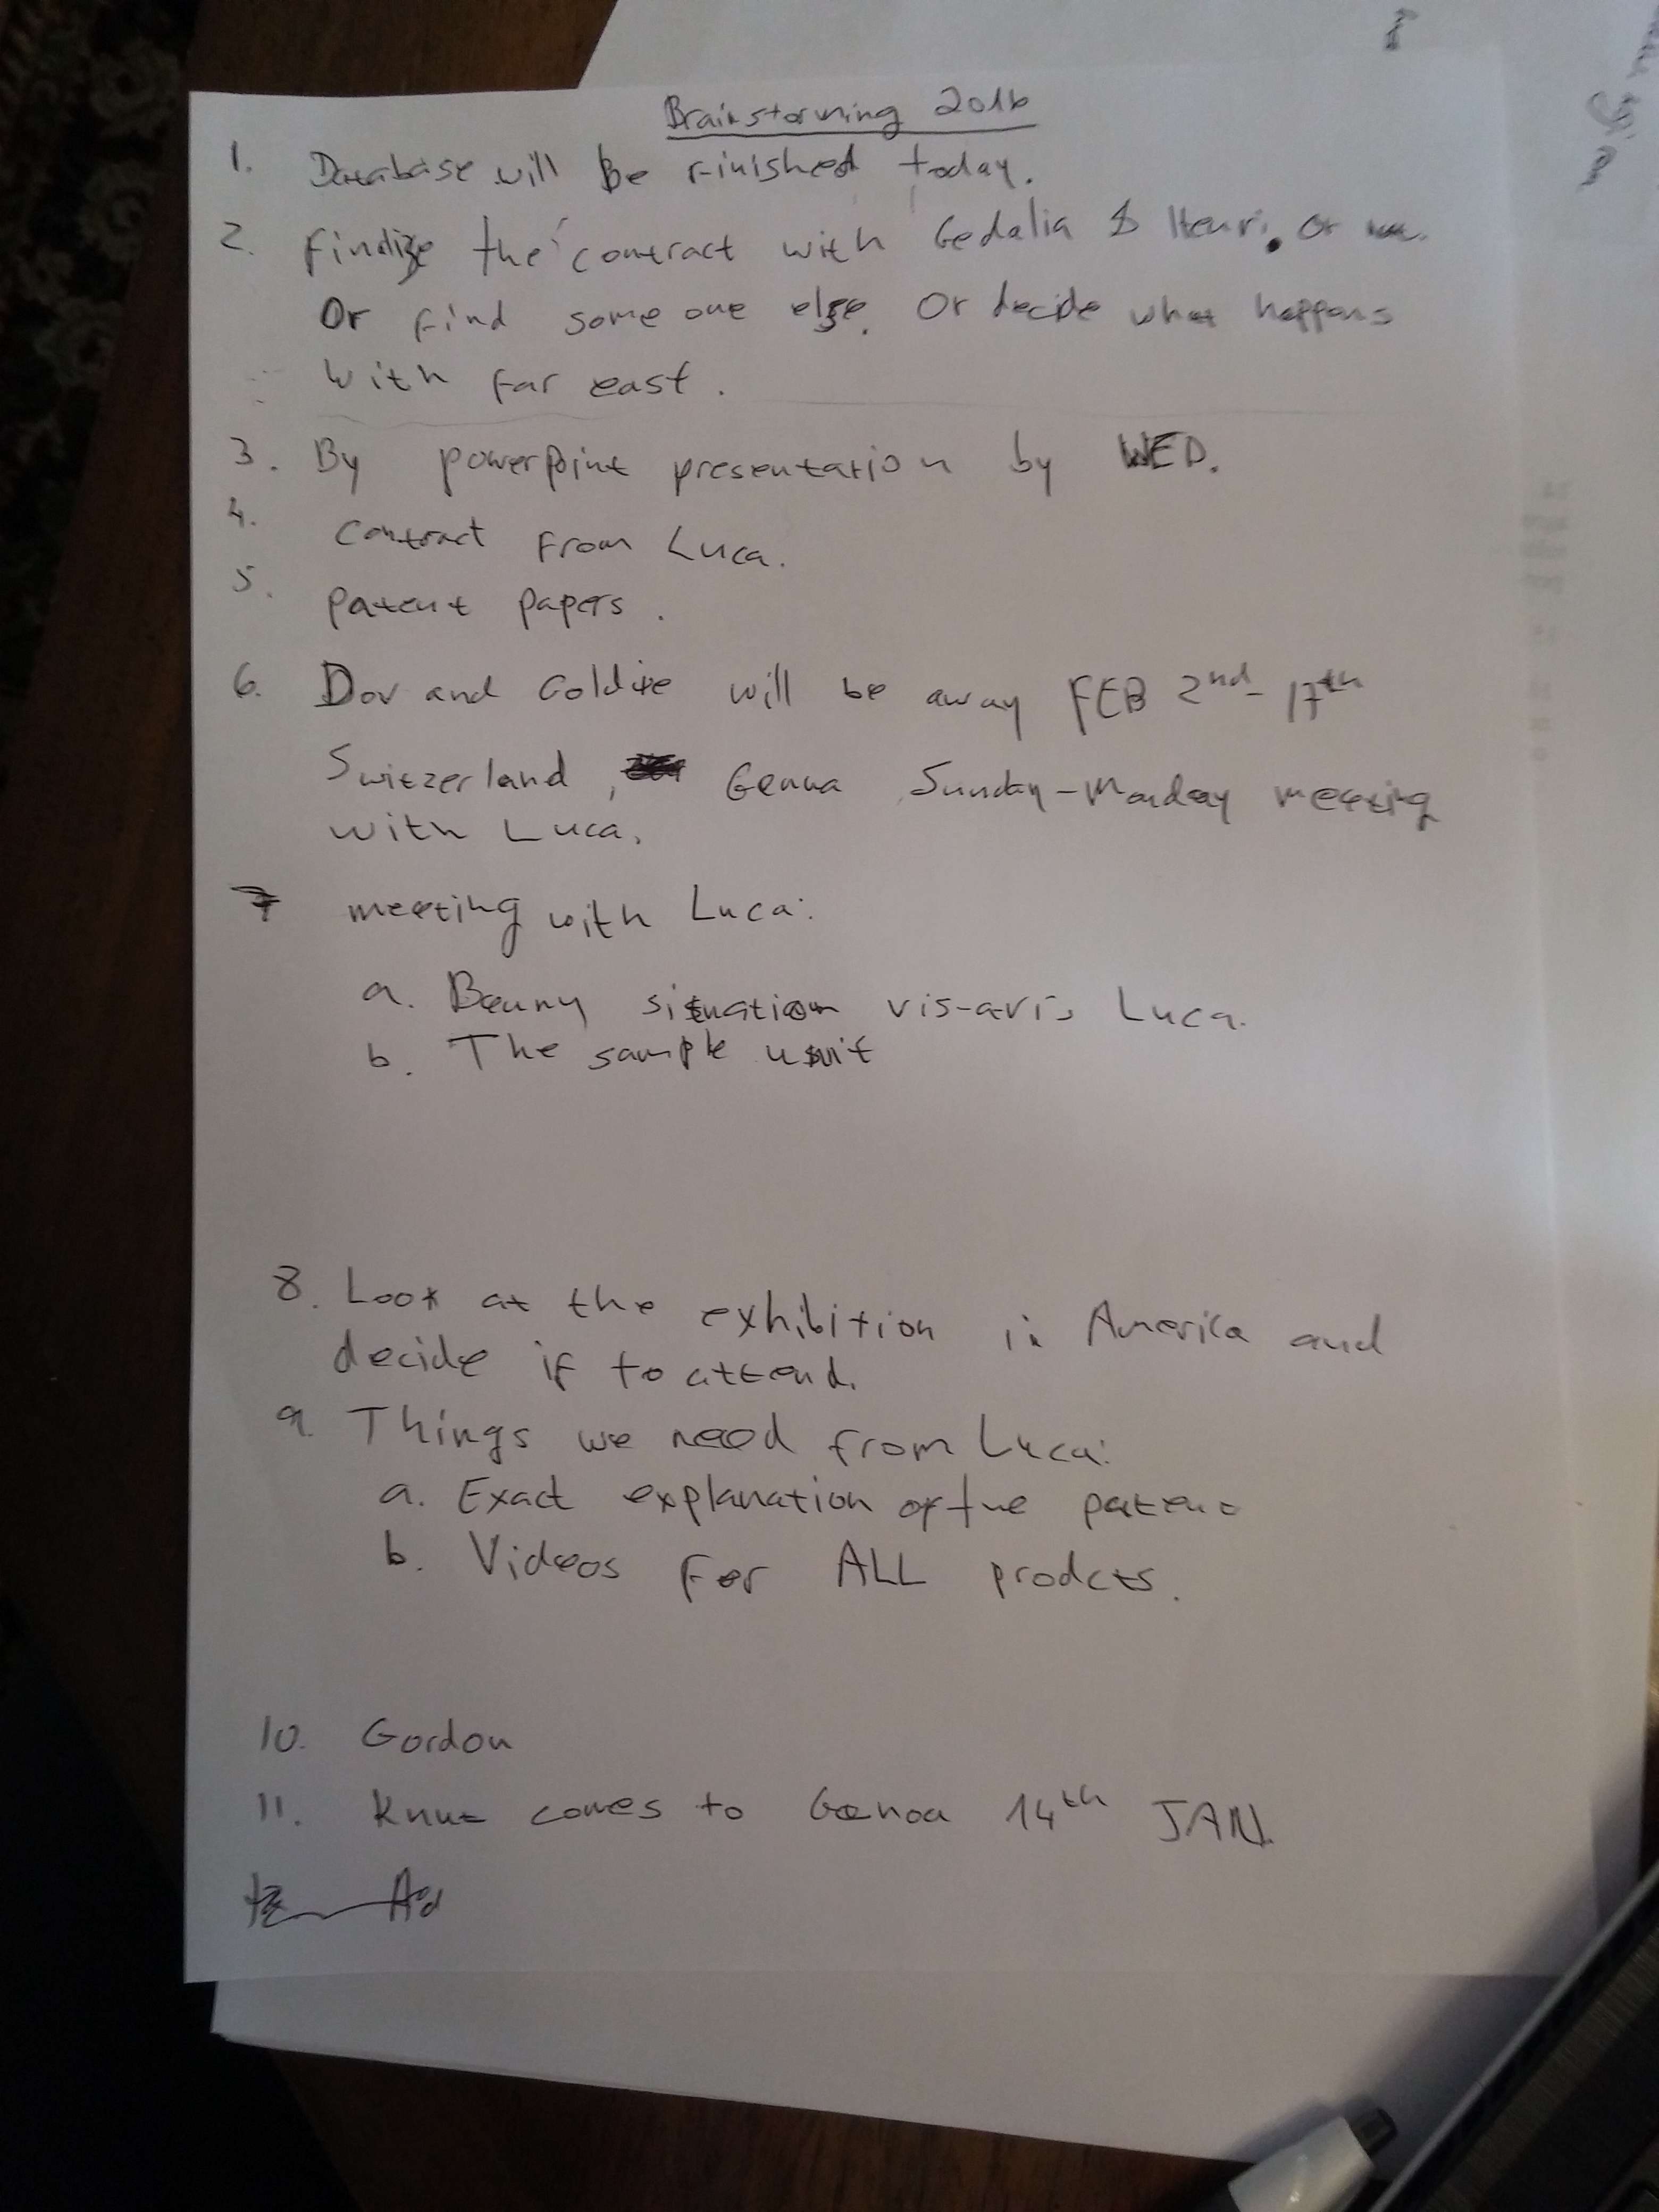 Brainstorming 2016
1. Database will Be Finished today.
2. Finalize the contract with Gedalia & Henri. Or
Or find some one else. Or decide what happens
with far east.
3. By powerpoint presentation by WED.
4. Contract From Luca.
5. patent papers.
6. Dov and Goldie will be away FEB 2nd - 17th
Switzerland, Genua Sunday-Monday meeting
with Luca.
7 meeting with Luca:
a. Benny situation vis-avis Luca.
b. The sample unit
8. Look at the exhibition in America and
decide if to attend.
9. Things we need from Luca:
a. Exact explanation of the patent
b. Videos for ALL prodcts.
10. Gordon
11. Knut comes to Genoa 14th JAN.